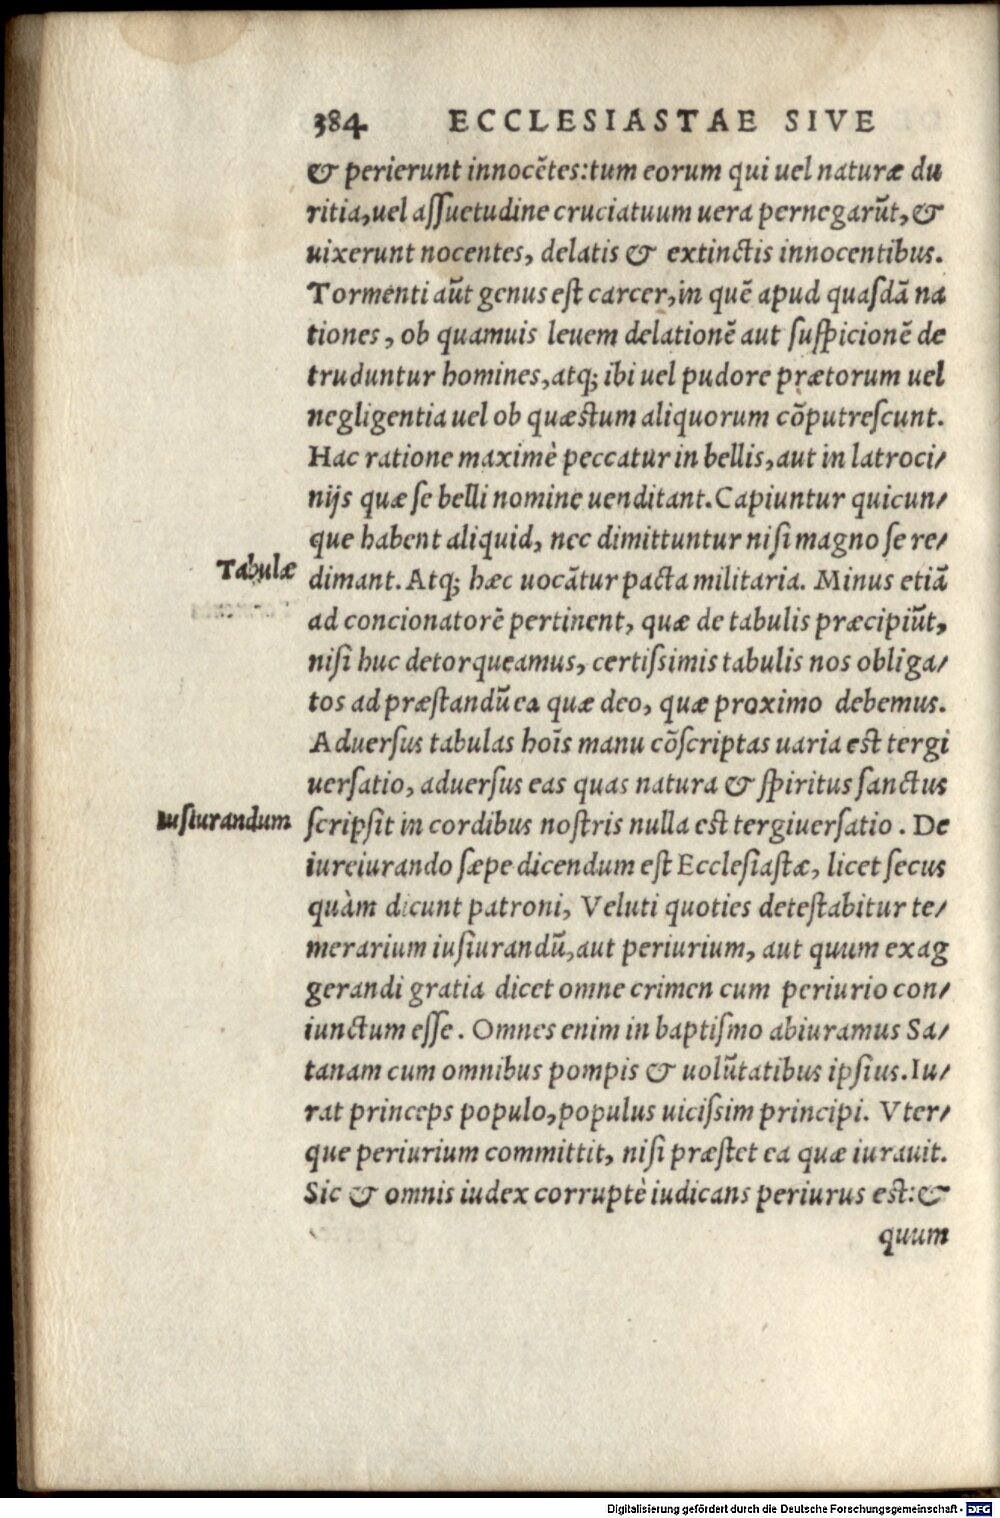 384 ECCLESIASTAE SIVE
& perierunt innocẽtes: tum eorum qui uel naturæ du
ritia, uel aſſuetudine cruciatuum uera pernegarũt, &
uixerunt nocentes, delatis & extinctis innocentibus.
Tormenti aũt genus eſt carcer, in quẽ apud quaſdã na
tiones, ob quamuis leuem delationẽ aut ſuſpicionẽ de
truduntur homines, atq; ibi uel pudore prætorum uel
negligentia uel ob quæſtum aliquorum cõputreſcunt.
Hac ratione maximè peccatur in bellis, aut in latroci/
nijs quæ ſe belli nomine uenditant. Capiuntur quicun/
que habent aliquid, nec dimittuntur niſi magno ſe re/
Tabulæ
dimant. Atq; hæc uocãtur pacta militaria. Minus etiã
ad concionatorẽ pertinent, quæ de tabulis præcipiũt,
niſi huc detorqueamus, certiſsimis tabulis nos obliga/
tos ad præſtandũ ea quæ deo, quæ proximo debemus.
Aduerſus tabulas hoĩs manu cõſcriptas uaria eſt tergi
uerſatio, aduerſus eas quas natura & ſpiritus ſanctus
Iuſiurandum
ſcripſit in cordibus noſtris nulla eſt tergiuerſatio. De
iureiurando ſæpe dicendum eſt Eccleſiaſtæ, licet ſecus
quàm dicunt patroni, Veluti quoties deteſtabitur te/
merarium iuſiurandũ, aut periurium, aut quum exag
gerandi gratia dicet omne crimen cum periurio con/
iunctum eſſe. Omnes enim in baptiſmo abiuramus Sa/
tanam cum omnibus pompis & uolũtatibus ipſius. Iu/
rat princeps populo, populus uiciſsim principi. Vter/
que periurium committit, niſi præſtet ea quæ iurauit.
Sic & omnis iudex corruptè iudicans periurus eſt: &
quum
Digitalisierung gefördert durch die Deutsche Forschungsgemeinschaft - DFG